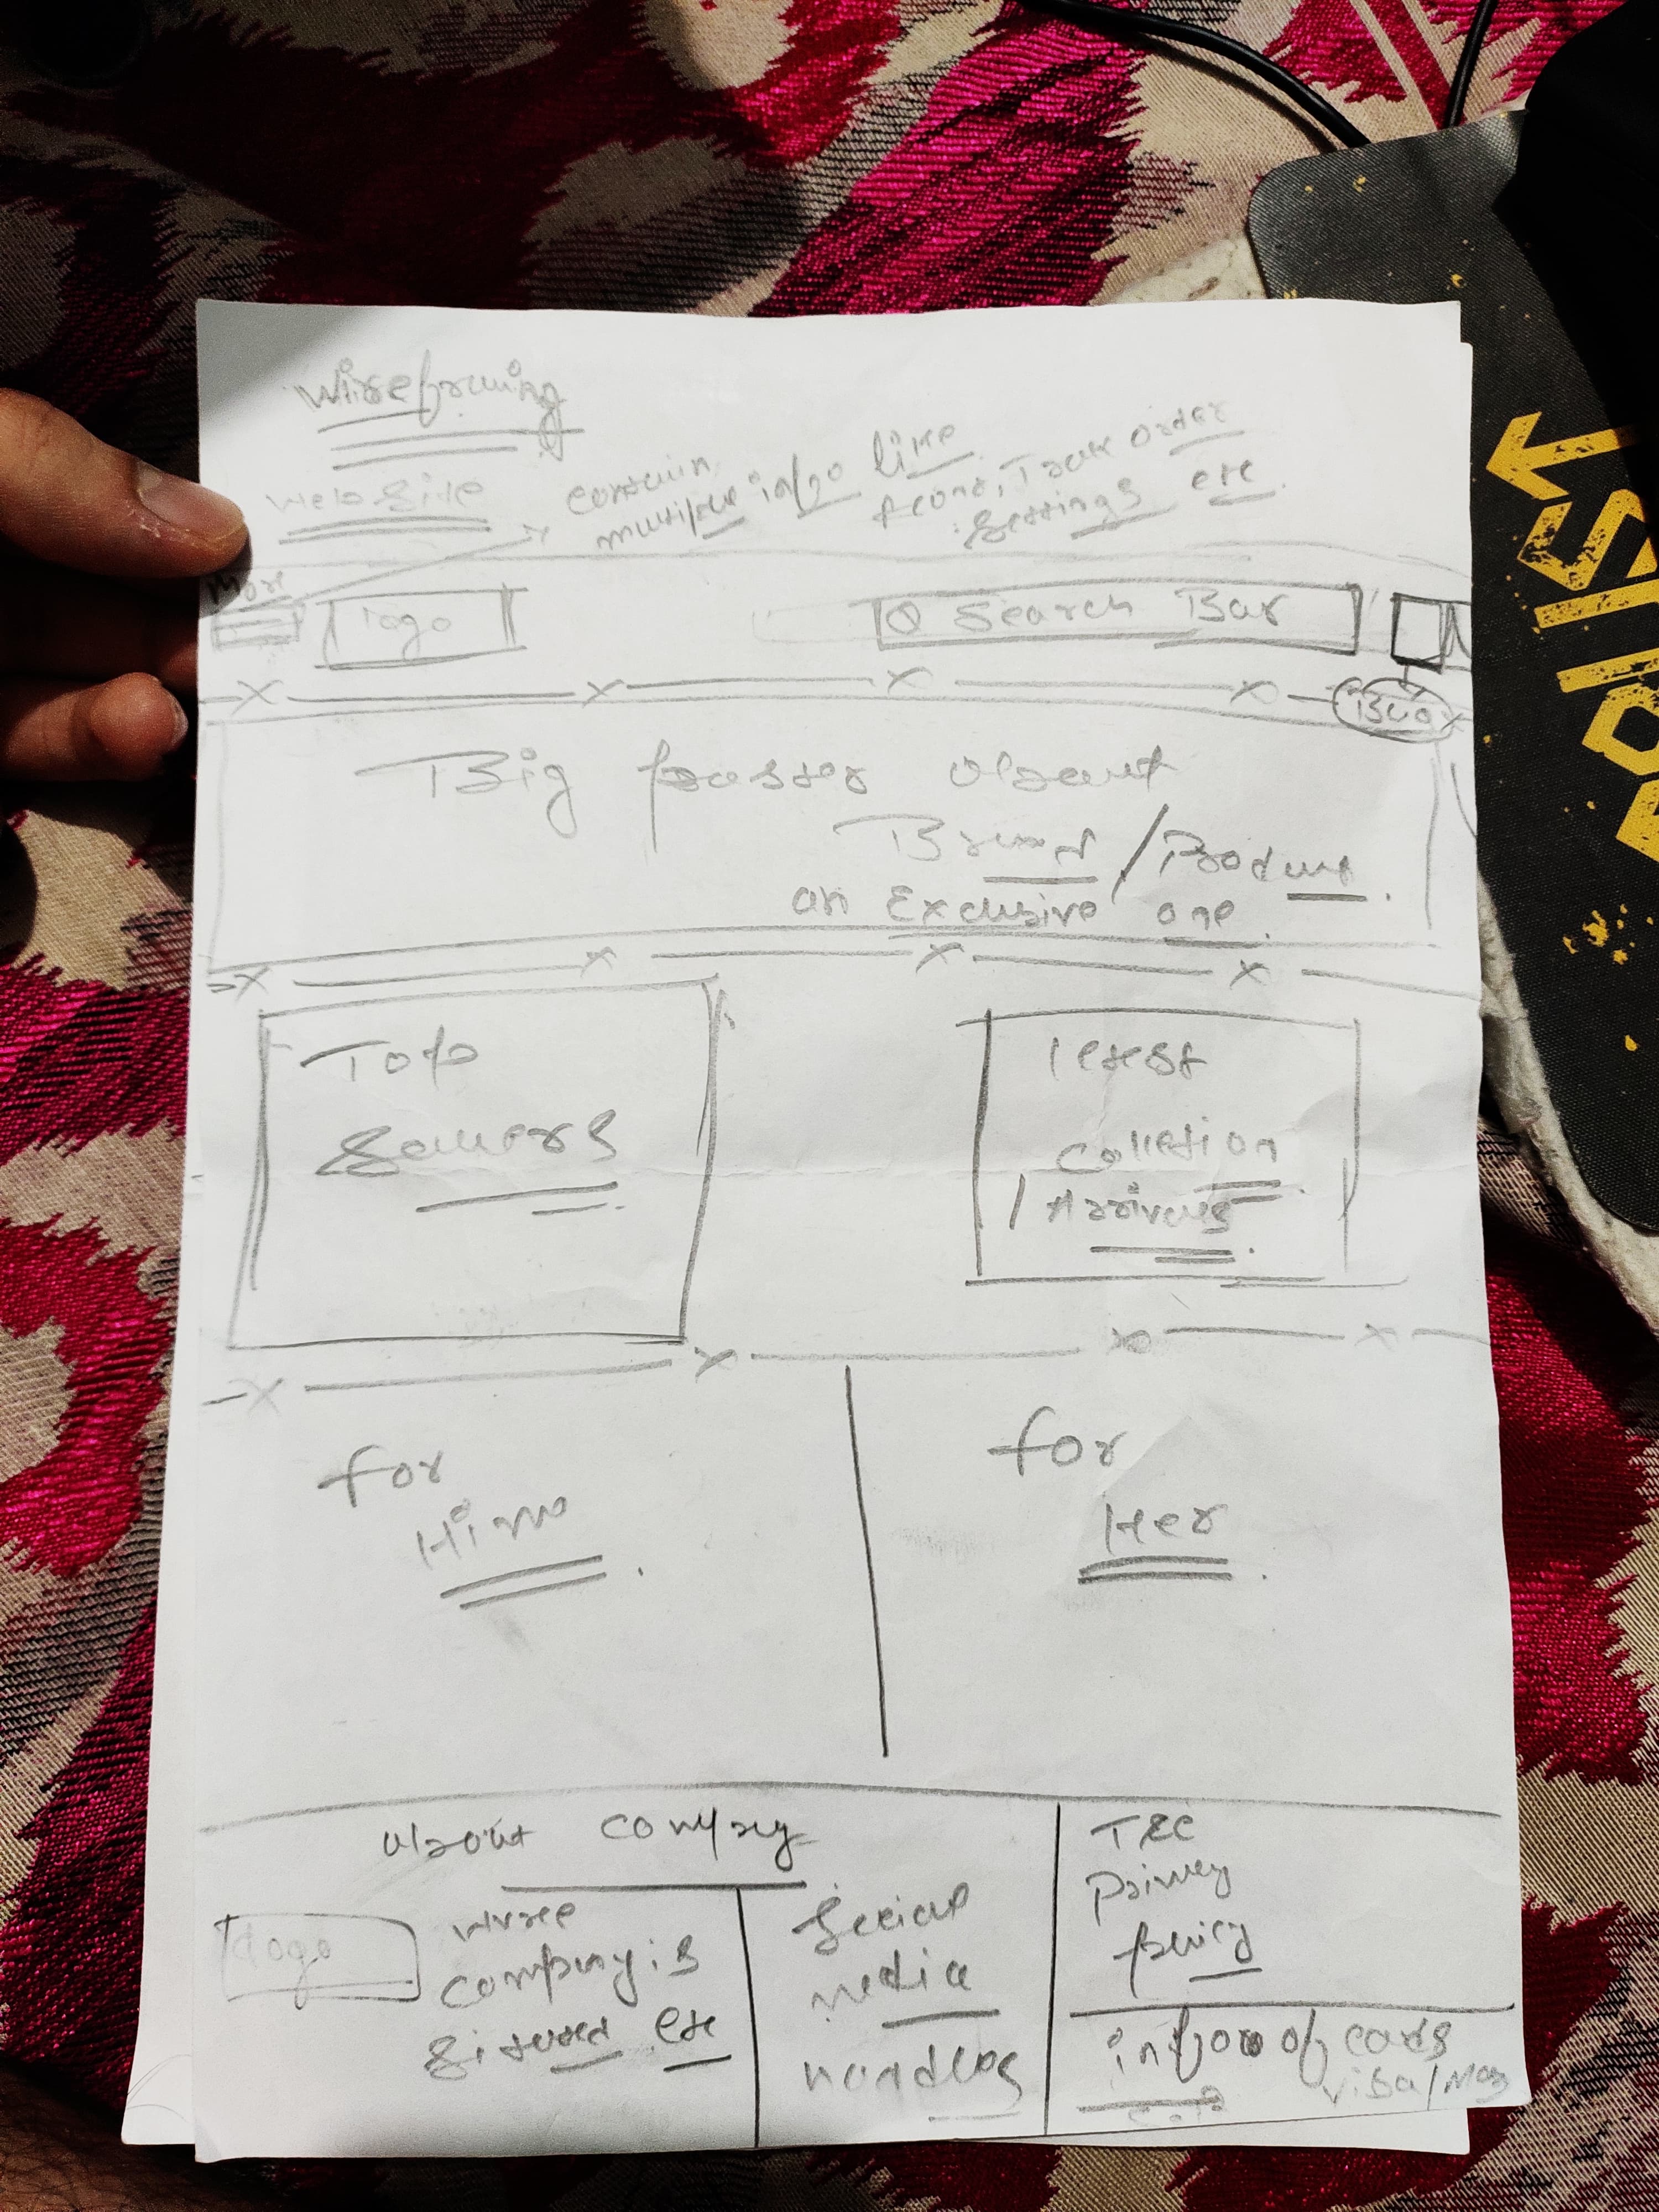 Wireframing
Website
contain
multiple info like
Acont, Track Order
Settings etc
More
logo
Search Bar
Bag
Big poster about
Brand / Product
an Exclusive one.
Top
Sallers
letest
Colletion
/ Arrivals
for
Him
for
Her
about compny
logo
where
company is
situated etc
Social
media
handles
T&C
Privacy
policy
infoo of cards
Visa/Mas